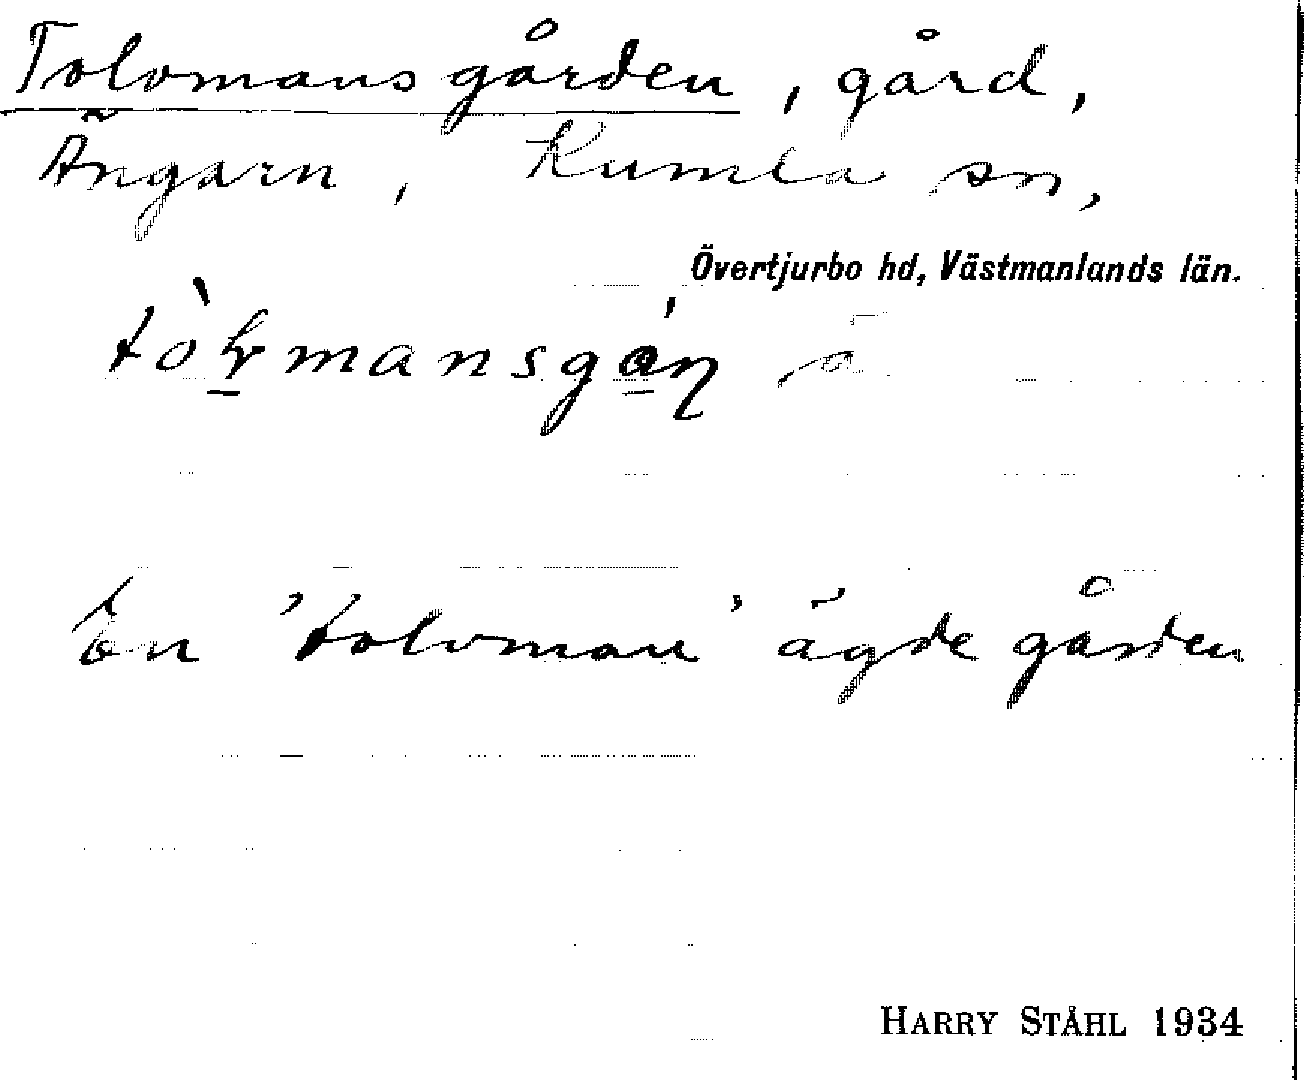 Tolvmansgården, gård,
Ängarn, Kumla sn,
Övertjurbo hd, Västmanlands län.
En 'tolvman' ägde gården
HARRY STÅHL 1934